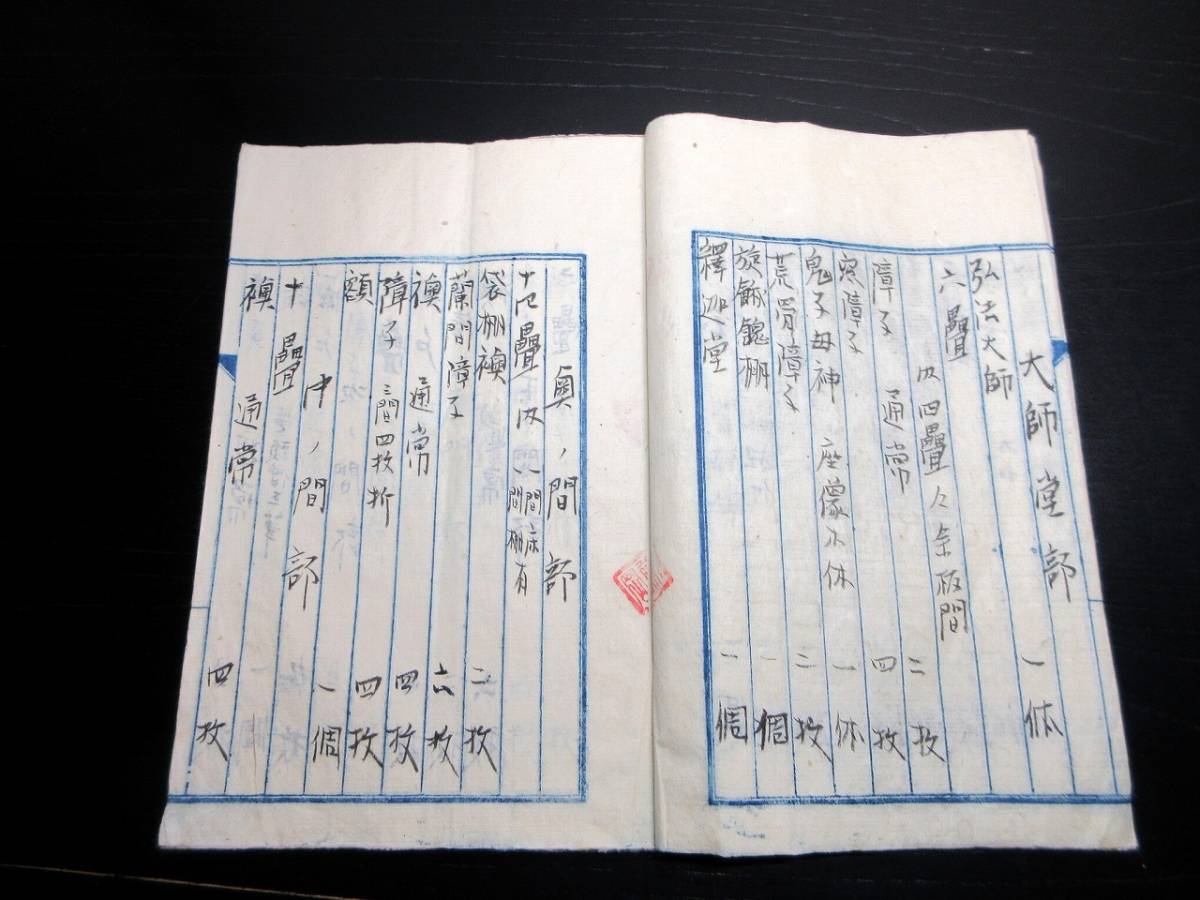 大師堂部
弘法大師 一体
六疊 内四疊々余板間
障子 通常 二枚
窓障子 四枚
鬼子母神 座像木体 一体
荒骨障子 二枚
施餓鬼棚 一個
釋迦堂 一個
奥ノ間部
十四疊内 一間床
一間棚有
袋棚襖 二枚
蘭間障子 六枚
襖戸 通常 四枚
障子 三間四枚折 四枚
額 一個
中ノ間部
十疊
襖 通常 四枚